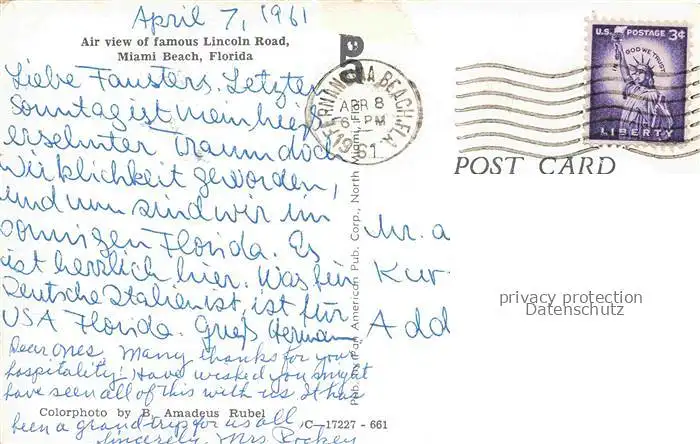 April 7, 1961
Air view of famous Lincoln Road,
Miami Beach, Florida
Liebe Fausters. Letzten
Sonntag ist mein heiß
ersehnter Traum doch
Wirklichkeit geworden,
und nun sind wir im
sonnigen Florida. Es
ist herrlich hier. Was für
Deutsche Italien ist, ist für
USA Florida. Gruß Hermann
Dear ones, Many thanks for your
hospitality! Have wished you might
have seen all of this with us. It has
Colorphoto by B. Amadeus Rubel
been a grand trip for us all
C-17227-661
Sincerely, Mrs
Pub. by Pan American Pub. Corp., North Miami, Fla.
P
FERNANDINA BEACH, FLA.
APR 8
6 PM
1961
U.S. POSTAGE 3¢
IN GOD WE TRUST
LIBERTY
POST CARD
Mr. a
Kur
Add
privacy protection
Datenschutz